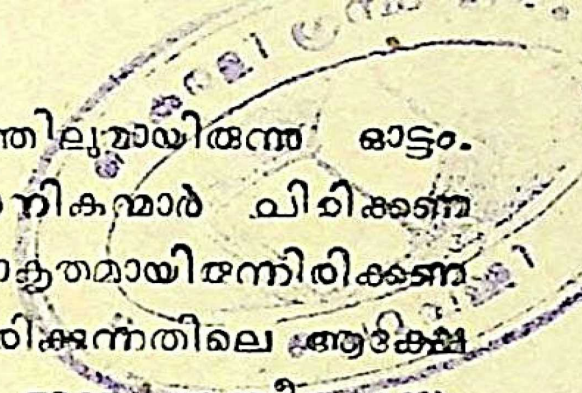 ത്തിലുമായിരുന്നു ഓട്ടം.
നികന്മാർ ചിരിക്കണ
കൃതമായിരുന്നിരിക്കണ
രിക്കുന്നതിലെ ആക്ഷേ